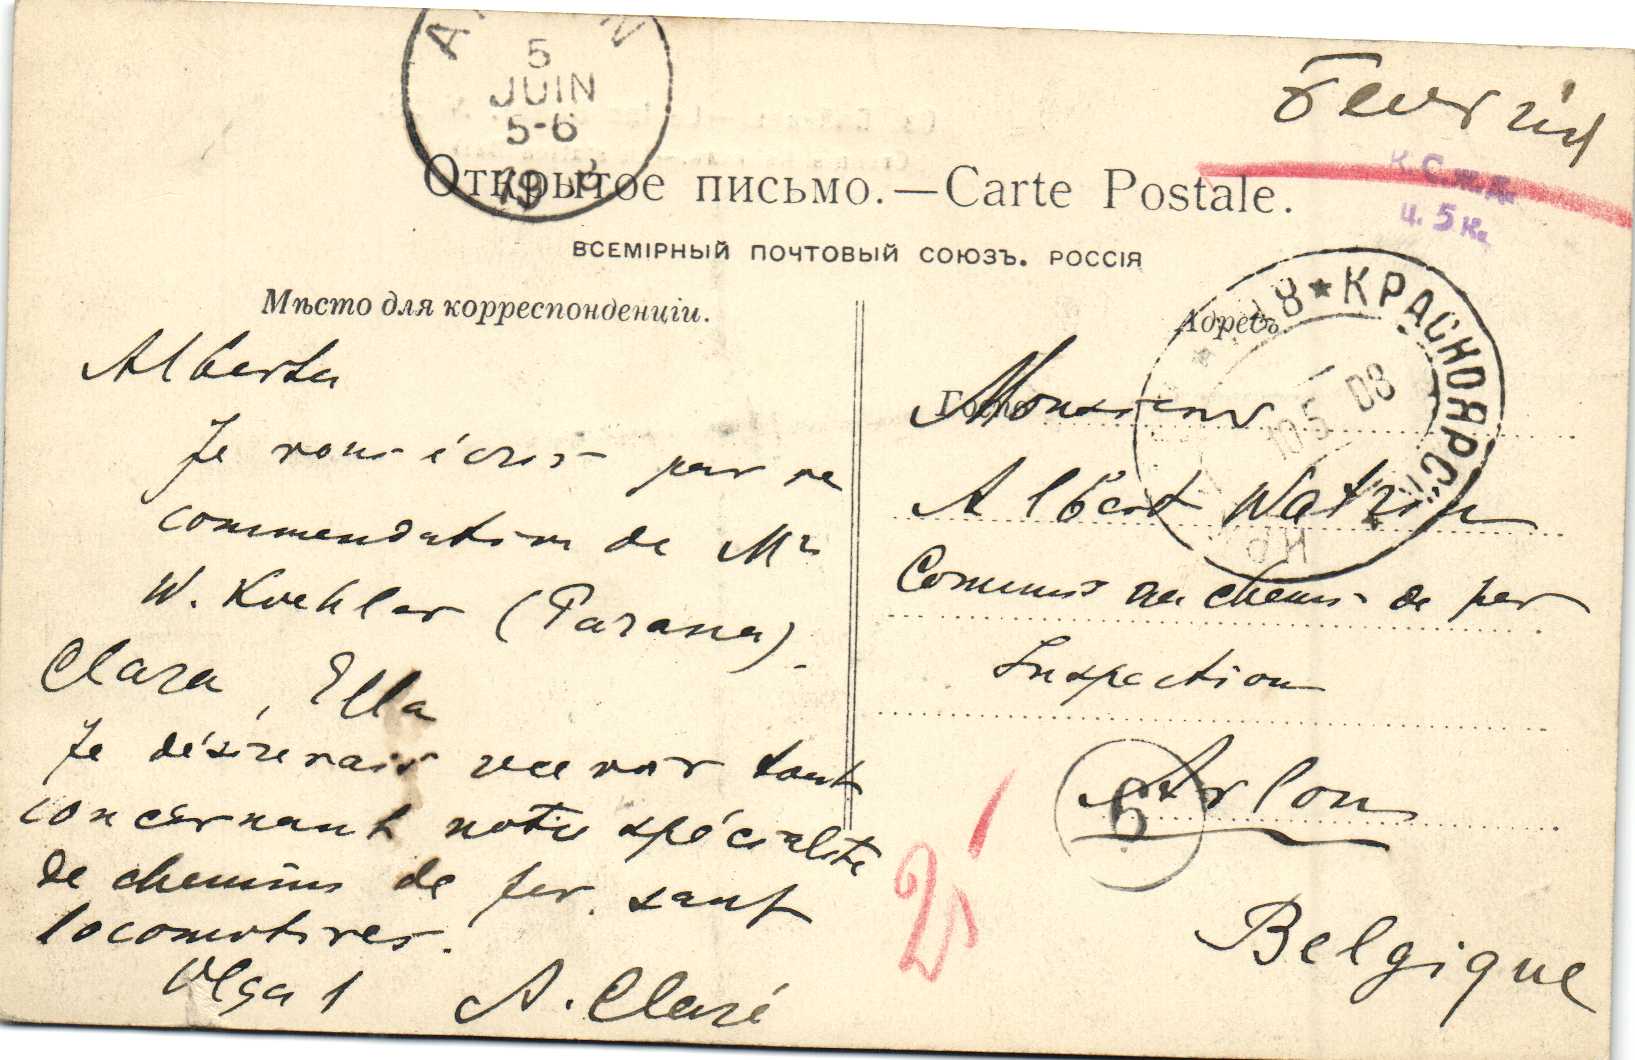 5
JUIN
5-6
19
Открытое письмо.—Carte Postale.
К.С.Ж.Д.
ц. 5 к.
ВСЕМІРНЫЙ ПОЧТОВЫЙ СОЮЗЪ. РОССІЯ
Мѣсто для корреспонденціи.
Alberta
Je vous écris par re
commendation de Mr
W. Koehler (Parana).
Clara, Ella
Je désirerais recevoir tout
concernant notre spécialité
de chemins de fer. sauf
locomotives.
Olga 1 A. Claré
Адресъ.
КРАСНОЯРСК
10 5 08
Monsieur
Albert Watrin
Commis au chemin de fer
Inspection
Arlon
6
Belgique